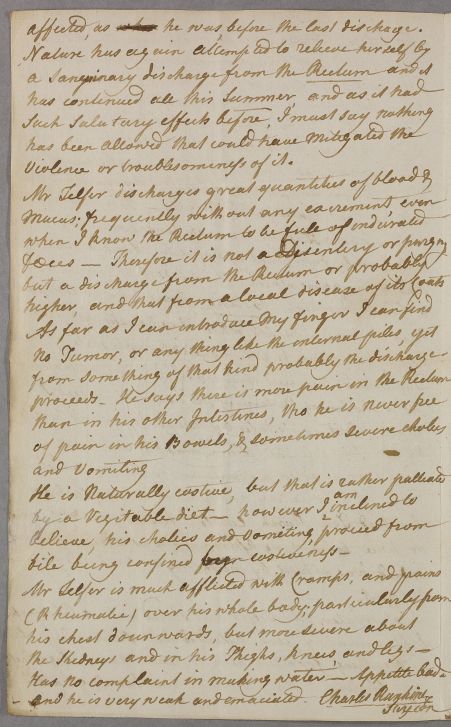 affected, as when he was before the last discharge.
Nature has again attempted to relieve herself by
a sanguinary discharge from the Rectum and it
has continued all this Summer, and as it had
such salutary effects before, I must say nothing
has been allowed that could have mitigated the
Violence or troublesomeness of it.
Mr Telfer discharges great quantities of blood &
Mucus; frequently without any excrement, even
when I know the Rectum to be full of indurated
fæces — Therefore it is not a Disentery or purging
but a discharge from the Rectum or probably
higher, and that from a local disease of its Coats
As far as I can introduce my finger I can find
no Tumor, or any thing like the internal piles, yet
from something of that kind probably the discharge
proceeds. He says there is more pain in the Rectum
than in his other Intestines, tho he is never free
of pain in his Bowels, & sometimes severe cholics
and Vomiting
He is Naturally costive, but that is rather palliated
by a Vegitable diet — however I am inclined to
believe, his cholics and Vomiting, proceed from
bile being confined from costiveness —
Mr Telfer is much afflicted with Cramps, and pains
(Rheumatic) over his whole body, particularly from
his chest downwards, but more severe about
the Kidneys and in his Thighs, knees and legs —
Has no complaint in making water — Appetite bad —
and he is very weak and emaciated.
Surgeon